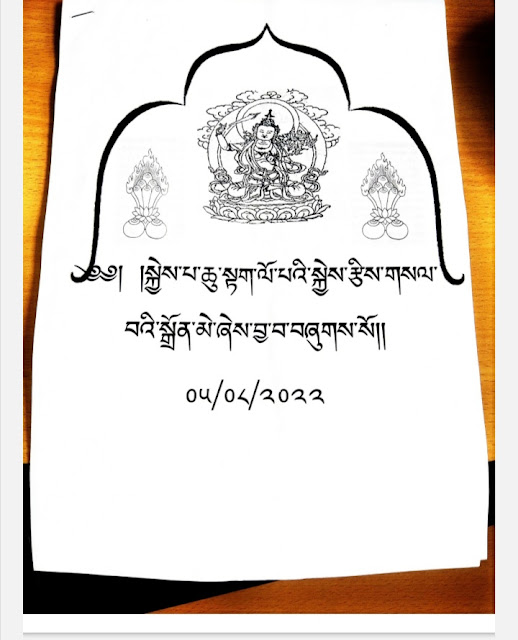 ༄༅། །སྐྱེས་པ་ཆུ་སྟག་ལོ་པའི་སྐྱེས་རྩིས་གསལ་
བའི་སྒྲོན་མེ་ཞེས་བྱ་བ་བཞུགས་སོ།།
༠༥/༠༨/༢༠༢༢